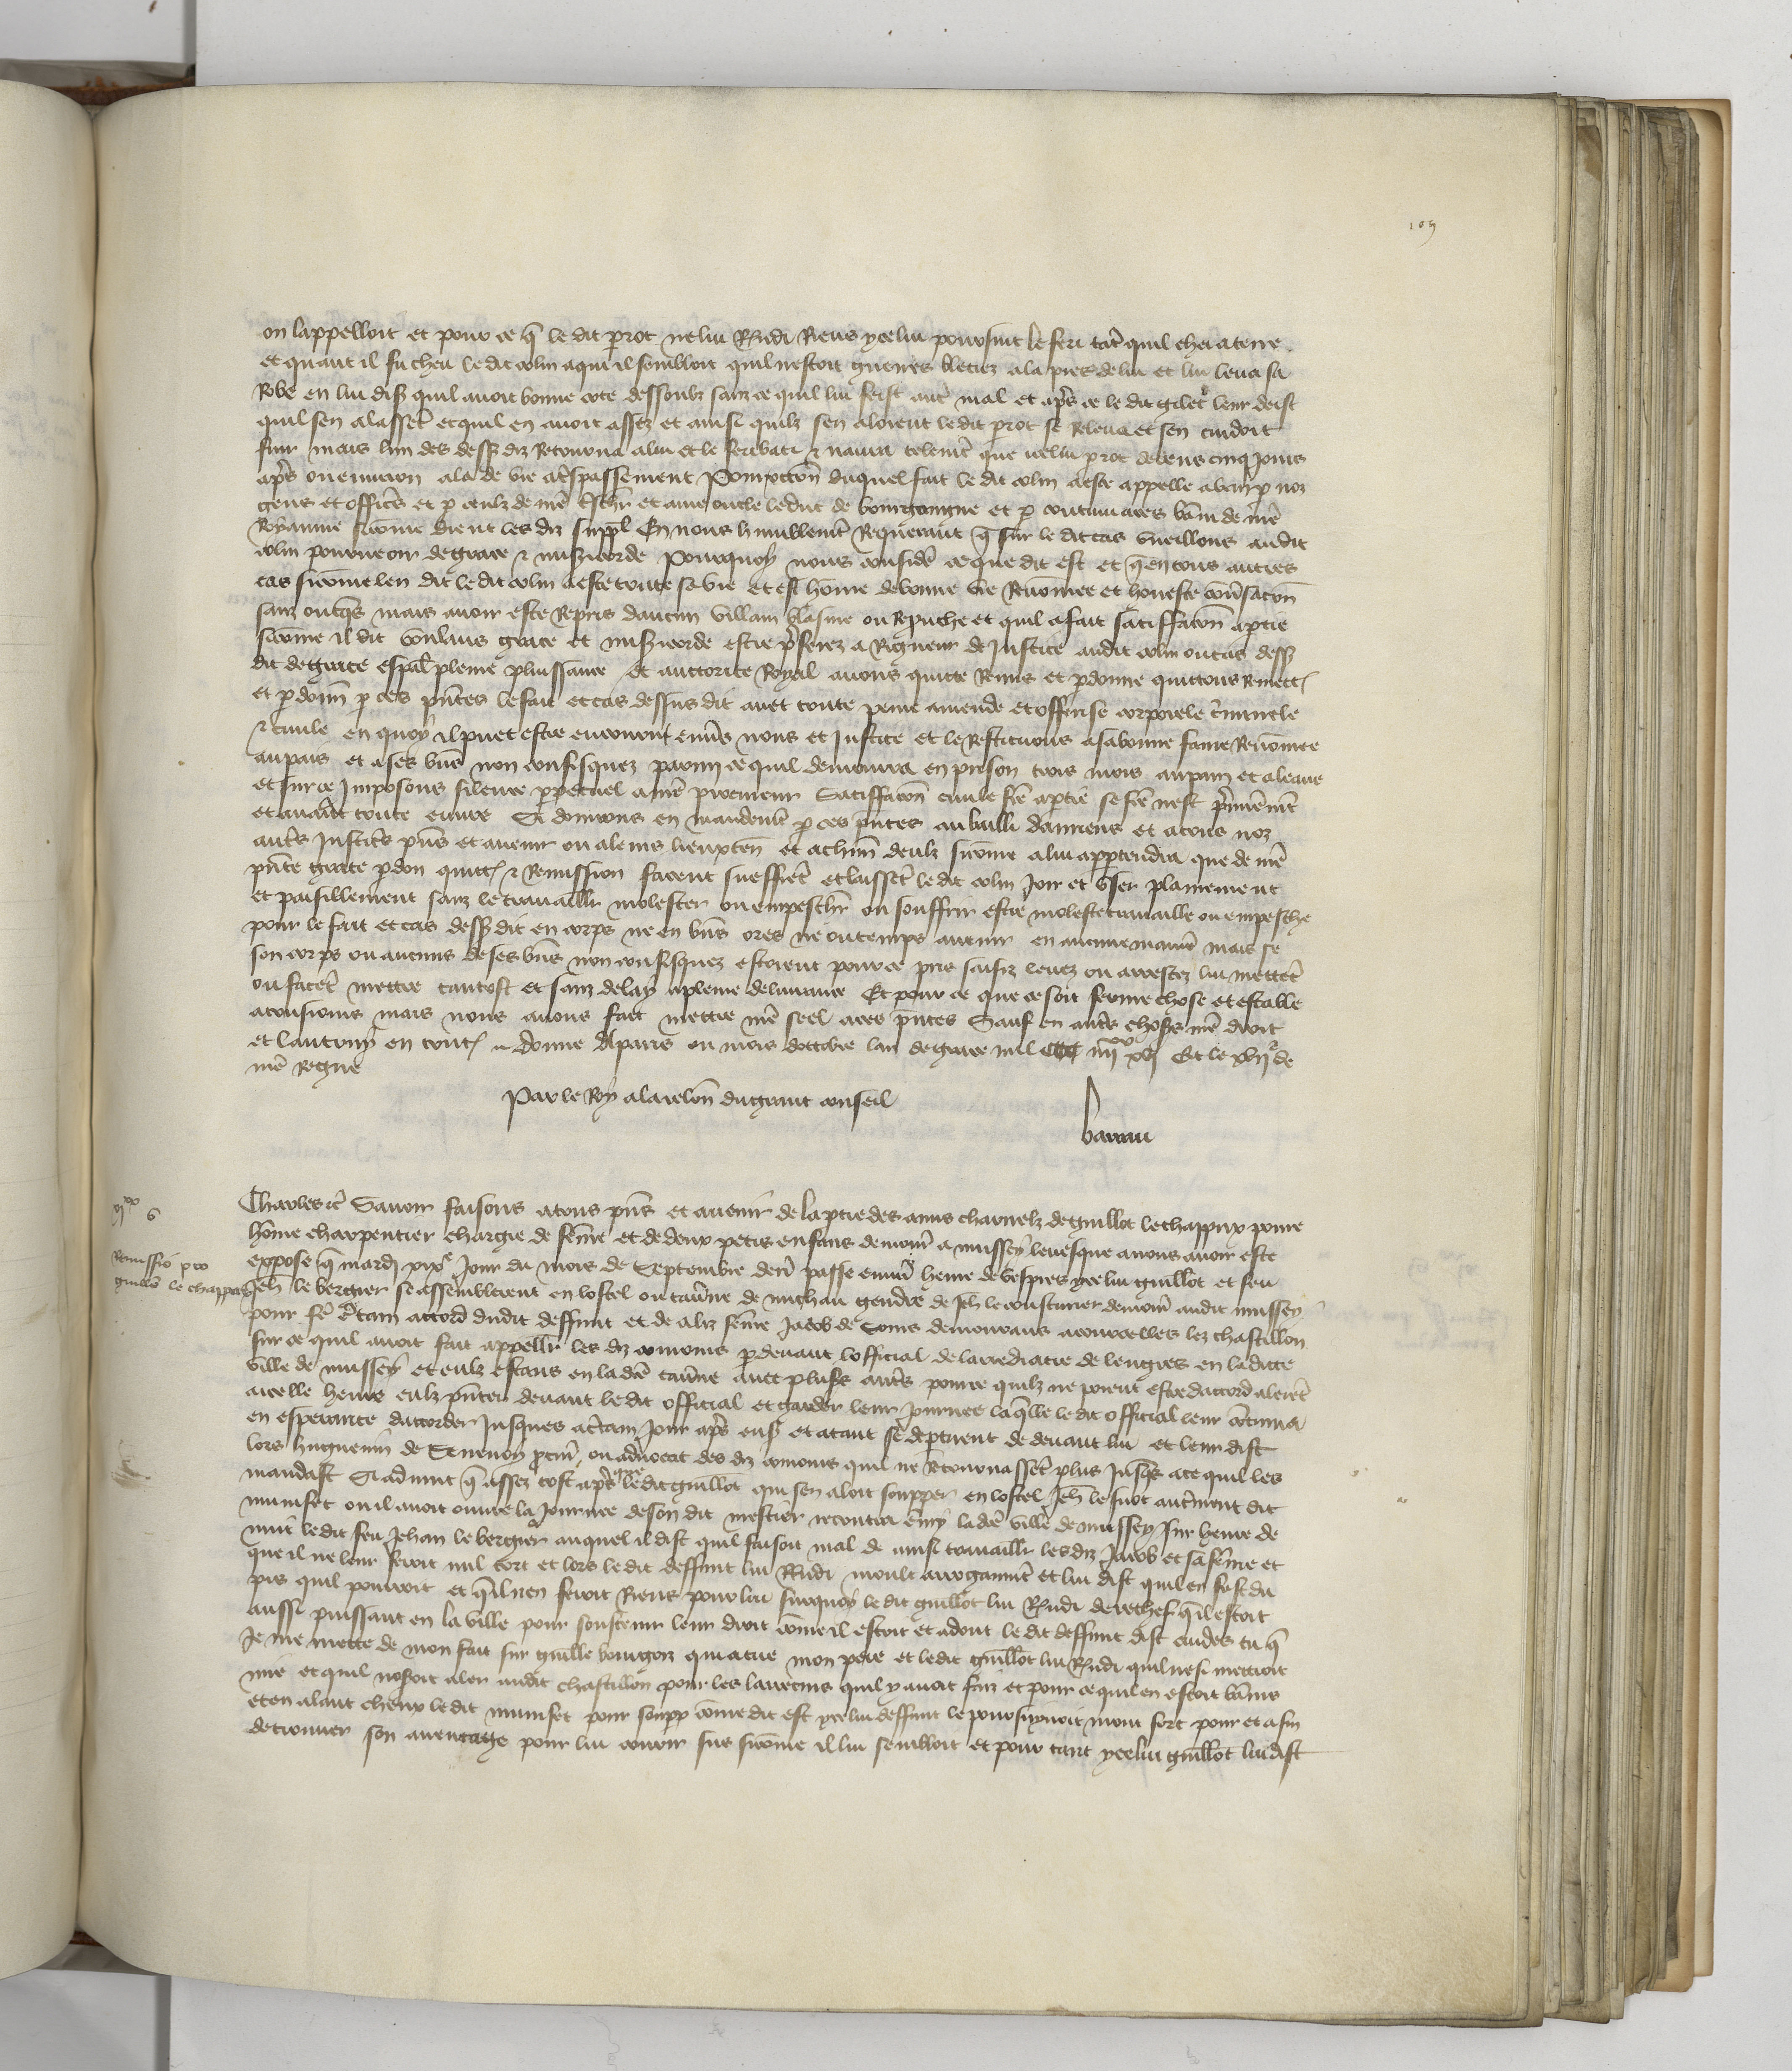 109
on lappelloit et pour ce q̃ le dit perot ne lui R̃ndi Riens ycelui poursuit le feri tãt quil chei a terre
et quant il fu cheu le dit colin a qui il sembloit quil nestoit gueres bleciez ala pres de lui et lui leva sa
Robe en lui disã quil avoit bonne cote dessoubz sanz ce quil lui feist autr̃ mal et apr̃s ce le dit gilet leur deist
quil sen alassẽt et quil en avoit assez et ainsi quilz sen aloient le dit perot se releva et sen cuidoit
fuir mais lun des dessˀ diz Retourna a lui et le feri bati ⁊ navra telemẽt que icelui perot dedens cinq jours
apr̃s ou environ ala de vie a trespassement Pour occoñ duquel fait le dit colin a este appelle a ban p noz
gens et officˀs et p ceulz de nr̃e tr̃schˀr et ame oncle le duc de bourgoingne et p contumaces bãni de nr̃e
Royaume si cõme dient les diz supplˀ En nous humblemẽt Requerant q̃ sur le dit cas vueillons au dit
colin pourveoir de grace ⁊ misˀicorde Pourquoy nous considẽ ce que dit est et q̃ en tous autres
cas si cõme len dit le dit colin a este toute sa vie et est hõme de bonne vie Renõmee et honeste cõv̾sacoñ
sanz onq̃s mais avoir este Repris daucun villain blasme ou Reprouche et quil a fait satisfaccõn a ptie
si cõme il dit voulans grace et misˀicorde estre p̃ferez a Rigueur de Justice au dit colin ou cas dessˀ
dit de grace espãl pleine puissance et auctorite Royal avons quitte Remis et pdonne quittons Remettˀ
et pdonñ p ces p̃ntes le fait et cas dessus dit avec toute peine amende et offense corporele c̾minele
⁊ civile en quoy il puet estre encouru envˀs nous et Justice et le Restituons a sa bonne fame Renõmee
au pais et a ses biñs non confisquez parmy ce quil demourra en prison trois mois au pain et a leaue
et sur ce Imposons silence ppetuel a nr̃e procureur Satisfaccõn civile f̃te a ptie se f̃te nest p̾mierem̃t
et avant toute euvre Si donnons en mandem̃t p ces p̃ntes au bailli damiens et a tous noz
autˀs Justicˀs p̃ns et avenir ou a leurs lieuxteñ et a chũn deulz si cõme a lui appartendra que de nr̃e
p̃nte grace pdon quittˀ ⁊ Remission facent sueffrẽt et laissẽt le dit colin Joir et user plainement
et paisiblement sanz le travaillˀ molester ou empeschˀ ou souffrir estre moleste travaille ou empesche
pour le fait et cas dessˀ dit en corps ne en biñs ores ne ou temps avenir en aucune manˀe mais se
son corps ou aucuns de ses biñs non confisquez estoient pour ce pris saisiz levez ou arrestez lui mettẽt
ou facẽt mettre tantost et sanz delay a pleine delivrance Et pour ce que ce soit ferme chose et estable
a tousiours mais nous avons fait mettre nr̃e seel a ces p̃ntes Sauf en autˀs choses nr̃e droit
et lautruy en toutˀ Donne a paris ou mois doctobre lan de grace mil CCC iiiixx xvj Et le xvije de
nr̃e Regne
Par le Roy a la relacõn du grant conseil
barrau
vjxx 6
Remissio pro
guillõ le chappux
Charles ⁊c̃ Savoir faisons a tous p̃ns et avenir de la ptie des amis charnelz de guillot le chappux povre
hõme charpentier chargie de fẽme et de deux petis enfans demour̃ a mussey levesque avons avoir este
expose q̃ mardj xixe Jour du mois de Septembre derr̃ passe enuir̃ heure de vespres ycelui guillot et feu
Jeh̃ le bergier se assemblerent en lostel ou tav̾ne de michau gendre de Jeh̃ le cousturier demour̃ au dit mussey
pour f̃e c̾tain accord du dit deffunt et de aliz fẽme Jacob de Coms demourans a courcelles lez chastillon
sur ce quil avoit fait appellˀ les diz conioins p devant lofficial de larcediacre de lengres en la dicte
ville de mussey et eulz estans en la dc̃e tav̾ne avec plusˀs autˀs pour ce quilz ne porent estre daccord alerẽt
a icelle heure eulz p̃nter devant le dit official et garder leur Journee laq̃lle le dit official leur cõtinua
en esperance daccorder Jusques a c̾tain Jour apr̃s ens̃ et atant se deptirent de devant lui et leur dist
lors huguenin de procur̃ ou advocat des diz conioins quil ne Retournassẽt plus Jusq̃s a ce quil les
mandast Si advint q̃ assez tost apr̃s ce le dit guillot qui sen aloit soupper en lostel Jeh̃ le autrement dit
mumset ou il avoit ouvre la Journee de son dit mestier recontra ẽmy la dc̃e ville de mussey sur heure de
nuit le dit feu Jehan le bergier auquel il dist quil faisoit mal de ainsi travaillˀ les diz Jacob et sa fẽme et
que il ne leur feroit nul tort et lors le dit deffunt lui R̃ndi moult arrogammẽt et lui dist quil en fist du
pis quil pourroit et q̃l nen feroit Riens pour lui surquoy le dit guillot lui R̃ndi derechef q̃l estoit
aussi puissant en la ville pour soustenir leur droit cõme il estoit et adont le dit deffunt dist cuides tu q̃
Je me mette de mon fait sur guille bourgoiz qui a tue mon pere et le dit guillot lui R̃ndi quil ne si mettroit
mie et quil nosoit aler au dit chastillon pour les larrecins quil y avoit faiz et pour ce quil en estoit bãnis
et en alant cheux le dit mumset pour soupp cõme dit est ycelui deffunt le poursuyvoit mout fort pour et a fin
de trouver son aventage pour lui courir sus si cõme il lui sembloit et pour tant ycelui guillot lui dist